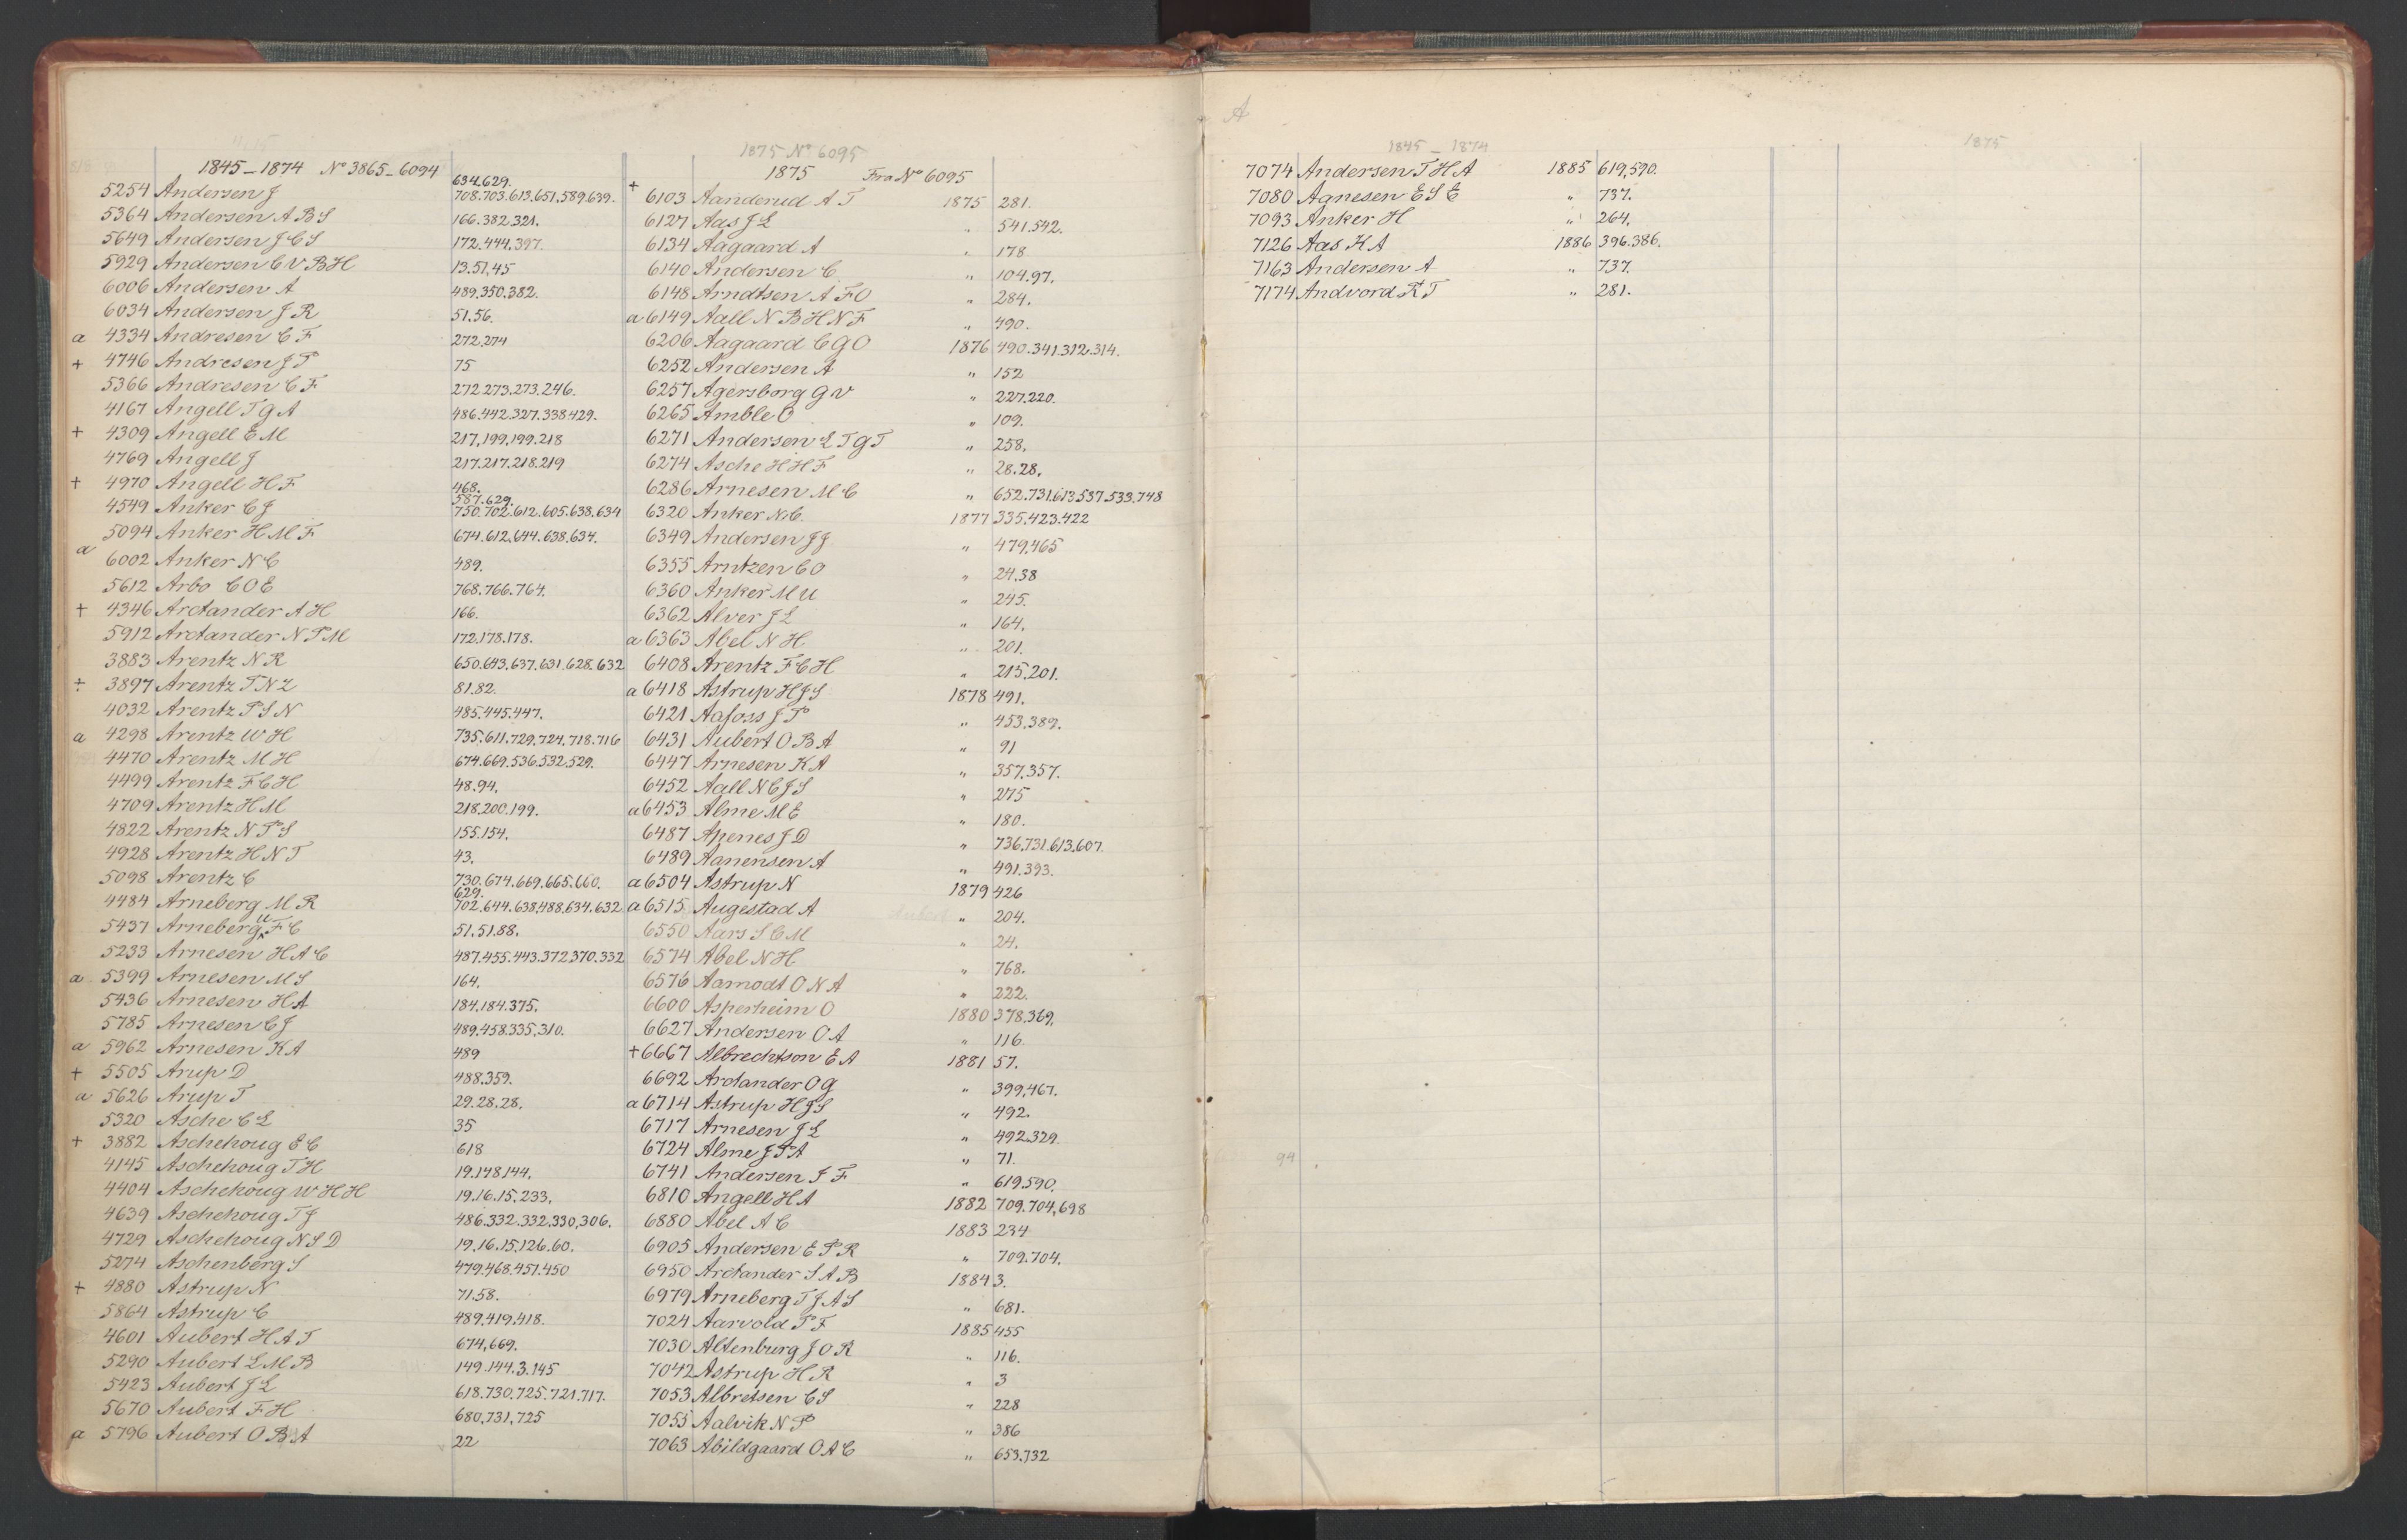 1845_1874 Nº 3865_6094
634.629.
5254 Andersen J 708.703.613.651.589.639.
5364 Andersen A B S 166.382.321.
5649 Andersen J C S 172.444.397.
5929 Andersen C V B H 13.51.45
6006 Andersen A 489.350.382.
6034 Andersen J R 51.56.
a 4334 Andresen C F 272,274
+ 4746 Andresen J P 75
5366 Andresen C F 272.273.273.246.
4167 Angell T G A 486.442.327.338.429.
+ 4309 Angell E M 217,199,199.218
4769 Angell J 217.217.218.219
+ 4970 Angell H F 468.
587.629.
4549 Anker C J 750.702.612.605.638.634
5094 Anker H M F 674.612.644.638.634.
a 6002 Anker N C 489.
5612 Arbo C O E 768.766.764.
+ 4346 Arctander A H 166.
5912 Arctander N P M 172.178.178.
3883 Arentz N R 650.643.637.631.628.632
+ 3897 Arentz T N Z 81.82.
4032 Arentz P S N 485.445.447.
a 4298 Arentz W H 735.611.729.724.718.716
4470 Arentz M H 674.669.536.532.529.
4499 Arentz F C H 48.94.
4709 Arentz H M 218.200.199.
4822 Arentz N P S 155.154.
4928 Arentz H N T 43.
5098 Arentz C 730.674.669.665.660.
629.
4484 Arneberg M R 702.644.638.488.634.632
5437 Arneberg U F C 51.51.88.
5233 Arnesen H A C 487.455.443.372.370.332
a 5399 Arnesen M S 164.
5436 Arnesen H A 184.184.375.
5785 Arnesen C J 489.458.335.310.
a 5962 Arnesen K A 489
+ 5505 Arup D 488.359.
a 5626 Arup T 29.28.28.
5320 Asche C L 35
+ 3882 Aschehoug E C 618
4145 Aschehoug T H 19.148.144.
4404 Aschehoug W H H 19.16.15.233.
4639 Aschehoug T J 486.332.332.330.306.
4729 Aschehoug N S D 19.16.15.126.60.
5274 Aschenberg S 479.468.451.450
+ 4880 Astrup N 71.58.
5864 Astrup C 489.419.418.
4601 Aubert H A T 674,669.
5290 Aubert L M B 149.144.3.145
5423 Aubert J L 618.730.725.721.717.
5670 Aubert F H 680,731,725
a 5796 Aubert O B A 22
1875 Nº 6095
1875 Fra Nº 6095
+ 6103 Aanderud A T 1875 281.
6127 Aas J L " 541.542.
6134 Aagaard A " 178
6140 Andersen C " 104.97.
6148 Arndtsen A F O " 284.
a 6149 Aall N B H N F " 490.
6206 Aagaard C G O 1876 490.341.312.314.
6252 Andersen A " 152
6257 Agersborg G V " 227.220.
6265 Amble O " 109.
6271 Andersen L T G T " 258.
6274 Asche H H F " 28.28.
6286 Arnesen M C " 652.731.613.537.533.748
6320 Anker N C. 1877 335.423.422
6349 Andersen J J " 479,465
6355 Arntzen C O " 24.38
6360 Anker M U " 245.
6362 Alver J L " 164.
a 6363 Abel N H " 201.
6408 Arentz F C H " 215.201.
a 6418 Astrup H J S 1878 491.
6421 Aafoss J P " 453,389.
6431 Aubert O B A " 91
6447 Arnesen K A " 357.357.
6452 Aall N C J S " 275
a 6453 Alme M E " 180.
6487 Apenes J D " 736,731.613.607.
6489 Aanensen A " 491.393.
a 6504 Astrup N 1879 426
a 6515 Augestad A " 204.
6550 Aars S C M " 24.
6574 Abel N H " 768.
6576 Aamodt O N A " 222.
6600 Asperheim O 1880 378.369.
6627 Andersen O A " 116.
+ 6667 Albrechtson E A 1881 57.
6692 Arctander O G " 399,467.
a 6714 Astrup H J S " 492.
6717 Arnesen J L " 492.329.
6724 Alme J P A " 71.
6741 Andersen J F " 619.590.
6810 Angell H A 1882 709.704,698
6880 Abel A C 1883 234
6905 Andersen E P R " 709.704.
6950 Arctander S A B 1884 3.
6979 Arneberg T J A S " 681.
7024 Aarvold P F 1885 455
7030 Altenburg J O R " 116.
7042 Astrup H R " 3
7053 Albretsen C S " 228
7055 Aalvik N P " 386
7063 Abildgaard O A C " 653.732
A
1845_1874
1875
7074 Andersen T H A 1885 619,590.
7080 Agnesen E S E " 737.
7093 Anker H " 264.
7126 Aas K A 1886 396.386.
7163 Andersen A " 737.
7174 Andvord R T " 281.
94